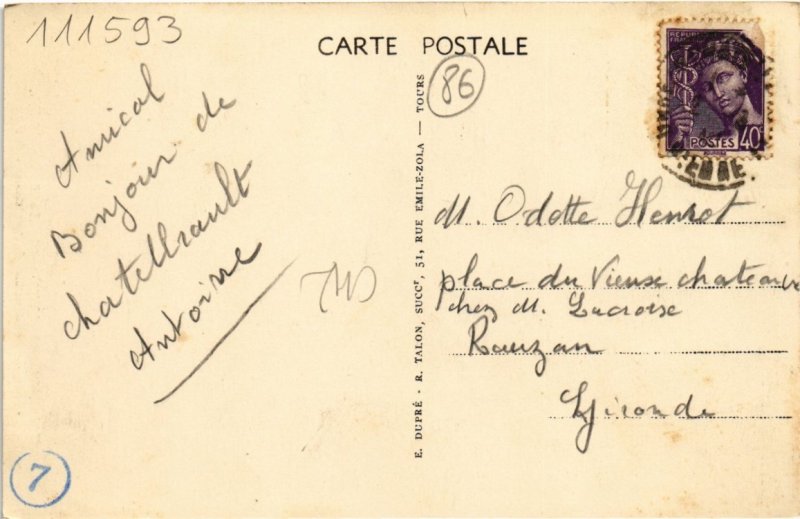 111593
CARTE POSTALE
86
Amical
Bonjour de
chatellrault
Antoine
E. DUPRÉ - R. TALON, SUCCr, 51, RUE EMILE-ZOLA — TOURS
RÉPUBLIQUE
FRANÇAISE
POSTES 40c
M. Odette Henrot
place du Vieuse chateau
chez M. Lacroise
Rauzan
Gironde
7